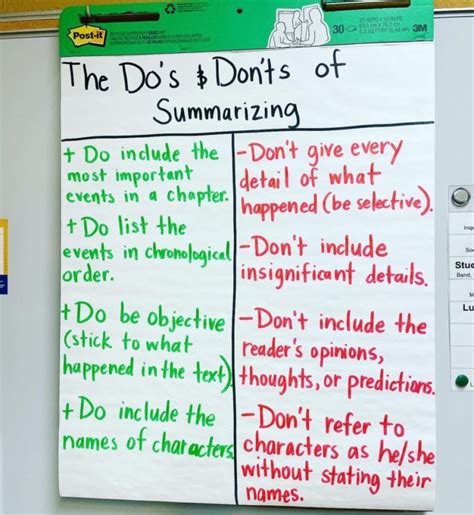 Post-it
30
3M
The Do's & Don'ts of
Summarizing
+ Do include the
most important
events in a chapter.
+ Do list the
events in chronological
order.
+ Do be objective
(stick to what
happened in the text)
+ Do include the
names of characters.
- Don't give every
detail of what
happened (be selective).
- Don't include
insignificant details.
- Don't include the
reader's opinions,
thoughts, or predictions.
- Don't refer to
characters as he/she
without stating their
names.
Stud
Band,
Lu